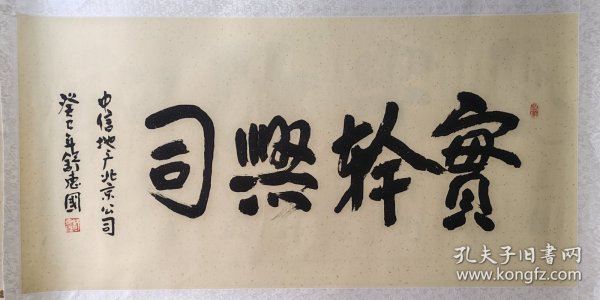 實幹興司
中信地产北京公司
癸巳年舒惠國
孔夫子旧書网
www.kongfz.com